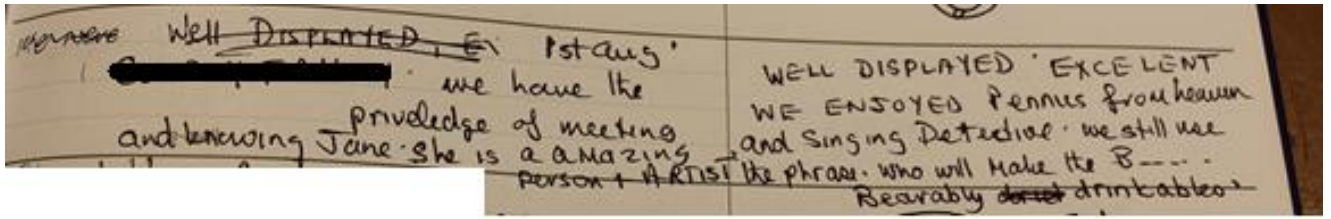 Well Displayed, E
1st Aug'
we have the
priveledge of meeting
and knowing Jane. She is a amazing
person + ARTIST
WELL DISPLAYED ' EXCELENT
WE ENJOYED Pennies from heaven
and Singing Detective. we still use
the phrase. who will make the B-----.
Bearably drinkables'